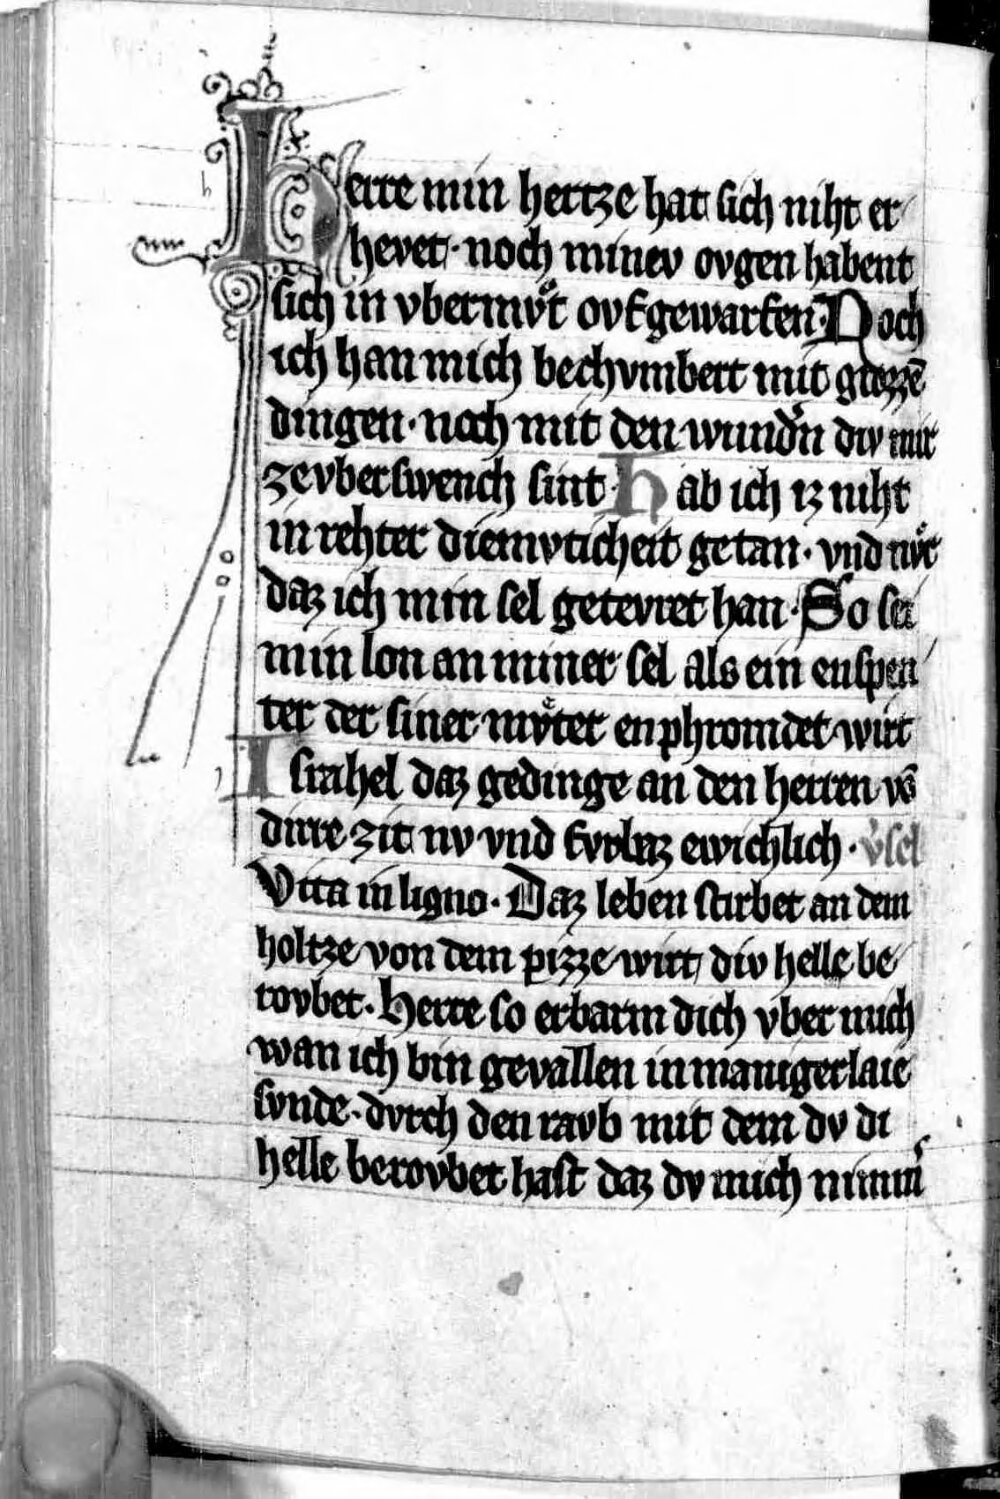 Herre min hertze hat sich niht er
hevet · noch minev ovgen habent
sich in vbermvͦt ovfgeworfen · Noch
ich han mich bechvmbert mit grozzē
dingen · noch mit den wundˀn div mir
ze vberswench sint · Hab ich iz niht
in rehter diemvticheit getan · vnd nvͦr
daz ich min sel getevret han · So sei
min lon an miner sel als ein enspen
ter der siner mvͦter enphromdet wirt
Israhel daz gedinge an den herren vō
dirre zit nv vnd fvrbaz ewichlich · vˀsel
Vita in ligno · Daz leben stirbet an dem
holtze von dem pizze wirt div helle be
rovbet · Herre so erbarm dich vber mich
wan ich bin gevallen in manigerlaie
svnde · dvrch den ravb mit dem dv di
helle berovbet hast daz dv mich nimmˀ